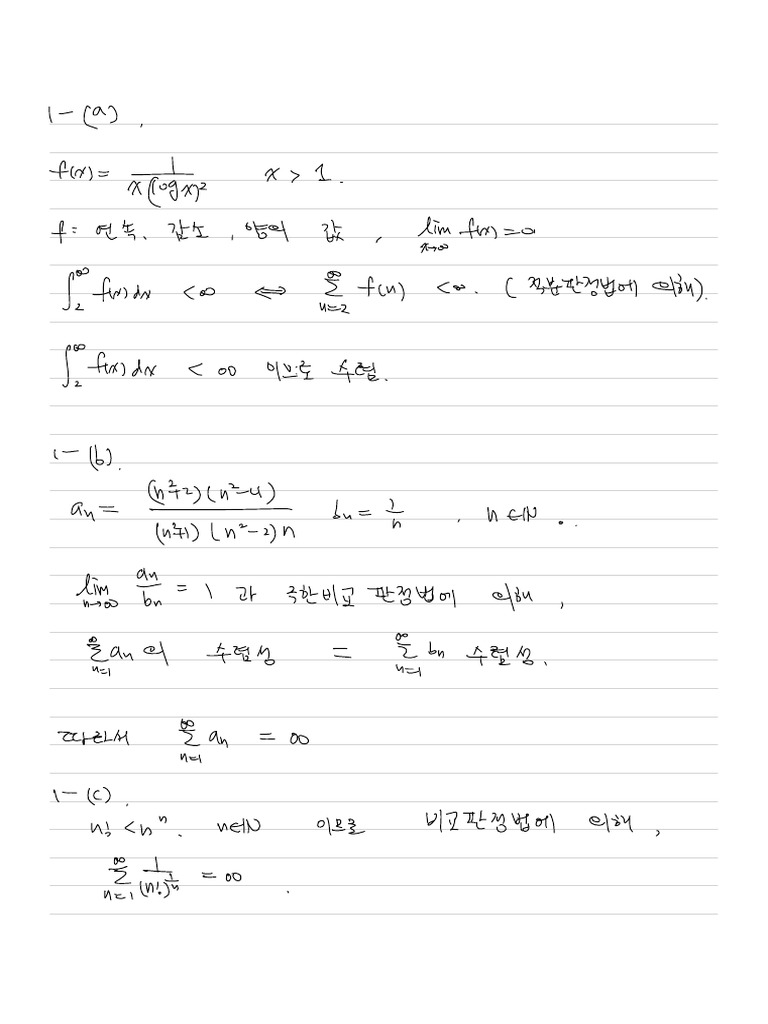 1-(a).
f(x) = 1/(x(log x)²)   x > 1.
f: 연속, 감소, 양의 값, lim_{x→∞} f(x) = 0
∫_2^∞ f(x)dx < ∞ ⇔ ∑_{n=2}^∞ f(n) < ∞. (적분판정법에 의해).
∫_2^∞ f(x)dx < ∞ 이므로 수렴.
1-(b).
a_n = (n²+2)(n²-4)/((n²+1)(n²-2)n)   b_n = 1/n , n∈ℕ.
lim_{n→∞} a_n/b_n = 1 과 극한비교판정법에 의해,
∑_{n=1}^∞ a_n의 수렴성 = ∑_{n=1}^∞ b_n 수렴성.
따라서 ∑_{n=1}^∞ a_n = ∞
1-(c).
n! < n^n. n∈ℕ 이므로 비교판정법에 의해,
∑_{n=1}^∞ 1/(n!)^{1/n} = ∞.